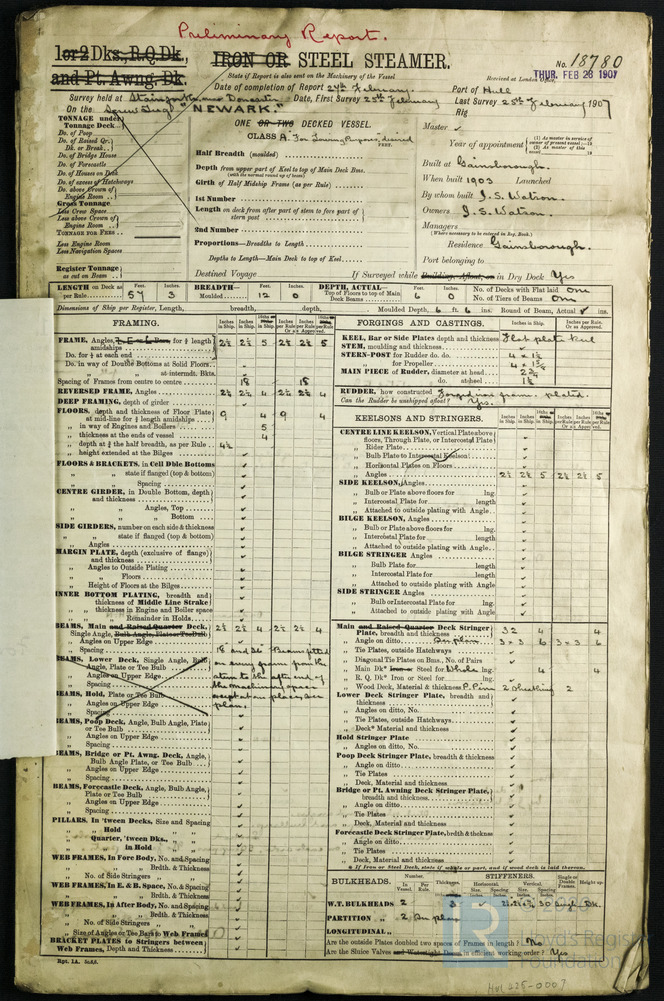 Preliminary Report.
1 or 2 Dks., R.Q.Dk.,
and Pt. Awng. Dk.
IRON OR STEEL STEAMER.
No. 18780
State if Report is also sent on the Machinery of the Vessel
Received at London
THUR. FEB 28 1907
Date of completion of Report 27th February. Port of Hull
Survey held at Stainforth, near Doncaster Date, First Survey 25th February Last Survey 25th February 1907
On the Screw Tugh "NEWARK." Rig
TONNAGE under Tonnage Deck
Do. of Poop
Do. of Raised Qr. Dk. or Break
Do. of Bridge House
Do. of Forecastle
Do. of Houses on Deck
Do. of excess of Hatchways
Do. above Crown of Engine Room
Gross Tonnage
Less Crew Space
Less above Crown of Engine Room
TONNAGE FOR FEES
Less Engine Room
Less Navigation Spaces
Register Tonnage as cut on Beam
ONE OR TWO DECKED VESSEL.
CLASS A "For Towing Purposes, desired
FEET.
Half Breadth (moulded)
Depth from upper part of Keel to top of Main Deck Bms. (with the normal round up of beam)
Girth of Half Midship Frame (as per Rule)
1st Number
Length on deck from after part of stem to fore part of stern post
2nd Number
Proportions—Breadths to Length
Depths to Length—Main Deck to top of Keel
Destined Voyage
If Surveyed while Building, Afloat, or in Dry Dock Yes
Master
Year of appointment
(1) As master in service of owner of present vessel
(2) As master of this vessel
Built at Gainsborough.
When built 1903 Launched
By whom built J. S. Watson.
Owners J. S. Watson.
Managers
(Where necessary to be entered in Reg. Book.)
Residence Gainsborough.
Port belonging to
LENGTH on Deck as per Rule Feet. 57 Inches. 3
BREADTH— Moulded Feet. 12 Inches. 0
DEPTH, ACTUAL— Top of Floors to top of Main Deck Beams Feet. 6 Inches. 0
No. of Decks with Flat laid One
No. of Tiers of Beams One
Dimensions of Ship per Register, Length, breadth, depth, Moulded Depth, 6 ft. 6 ins. Round of Beam, Actual ins.
FRAMING.
FRAME, Angles, for ¾ length amidships 2½ 2½ 5 2½ 2½ 5
Do. for ¼ at each end
Do. in way of Double Bottoms at Solid Floors
at intermdt. Bkts.
Spacing of Frames from centre to centre 18 18
REVERSED FRAME, Angles 2½ 2½ 4 2½ 2½ 4
DEEP FRAMING, depth of girder
FLOORS, depth and thickness of Floor Plate at mid-line for ½ length amidships 9 4 9 4
in way of Engines and Boilers 5
thickness at the ends of vessel 4
depth at ¾ the half breadth, as per Rule 4½
height extended at the Bilges
FLOORS & BRACKETS, in Cell Dble Bottoms
state if flanged (top & bottom)
Spacing
CENTRE GIRDER, in Double Bottom, depth and thickness
Angles, Top
Bottom
SIDE GIRDERS, number on each side & thickness
state if flanged (top & bottom)
Angles
MARGIN PLATE, depth (exclusive of flange) and thickness
Angles to Outside Plating
Floors
Height of Floors at the Bilges
INNER BOTTOM PLATING, breadth and thickness of Middle Line Strake
thickness in Engine and Boiler space
Remainder in Holds
BEAMS, Main and Raised Quarter Deck, Single Angle, Bulb Angle, Plate or Tee Bulb 2½ 2½ 4 2½ 2½ 4
Angles on Upper Edge
Spacing 18 and 36 Beams fitted
BEAMS, Lower Deck, Single Angle, Bulb Angle, Plate or Tee Bulb on every frame from the
Angles on Upper Edge stem to the after end of
Spacing the machinery space
BEAMS, Hold, Plate or Tee Bulb except at places, see
Angles on Upper Edge plan.
Spacing
BEAMS, Poop Deck, Angle, Bulb Angle, Plate or Tee Bulb
Angles on Upper Edge
Spacing
BEAMS, Bridge or Pt. Awng. Deck, Angle, Bulb Angle Plate, or Tee Bulb
Angles on Upper Edge
Spacing
BEAMS, Forecastle Deck, Angle, Bulb Angle, Plate or Tee Bulb
Angles on Upper Edge
Spacing
PILLARS, In 'tween Decks, Size and Spacing
Hold
Quarter, 'tween Dks.,
in Hold
WEB FRAMES, In Fore Body, No. and Spacing
Brdth. & Thickness
No. of Side Stringers
WEB FRAMES, In E. & B. Space, No. & Spacing
Brdth. & Thickness
WEB FRAMES, In After Body, No. and Spacing
Brdth. & Thickness
No. of Side Stringers
Size of Angles or Tee Bars to Web Frames
BRACKET PLATES to Stringers between Web Frames, Depth and Thickness
Rpt. 1A.
FORGINGS AND CASTINGS.
Inches in Ship. Inches per Rule Or as Approved.
KEEL, Bar or Side Plates depth and thickness Flat plate keel
STEM, moulding and thickness
STERN-POST for Rudder do. do. 4 × 1½
for Propeller 4 × 1¾
MAIN PIECE of Rudder, diameter at head 2¾
do. at heel 1½
RUDDER, how constructed Forged iron frame, plated.
Can the Rudder be unshipped afloat? Yes.
KEELSONS AND STRINGERS.
CENTRE LINE KEELSON, Vertical Plate above floors, Through Plate, or Intercostal Plate
Rider Plate
Bulb Plate to Intercostal Keelson
Horizontal Plates on Floors
Angles 2½ 2½ 5 2½ 2½ 5
SIDE KEELSON, Angles
Bulb or Plate above floors for lng.
Intercostal Plate for length
Attached to outside plating with Angle
BILGE KEELSON, Angles
Bulb or Plate above floors for lng.
Intercostal Plate for length
Attached to outside plating with Angle
BILGE STRINGER Angles
Bulb Plate for length
Intercostal Plate for length
Attached to outside plating with Angle
SIDE STRINGER Angles
Bulb or Intercostal Plate for lng.
Attached to outside plating with Angle
Main and Raised Quarter Deck Stringer Plate, breadth and thickness 32 4 4
Angle on ditto 3 × 3 6 3 × 3 6
Tie Plates, outside Hatchways
Diagonal Tie Plates on Bms., No. of Pairs
Main Dk* Iron or Steel for Whole lng. 4 4
R. Q. Dk* Iron or Steel for lng.
Wood Deck, Material & thickness P. Pine 2 Sheathing 2
Lower Deck Stringer Plate, breadth and thickness
Angles on ditto, No.
Tie Plates, outside Hatchways
Deck* Material and thickness
Hold Stringer Plate
Angles on ditto, No.
Poop Deck Stringer Plate, breadth & thickness
Angle on ditto
Tie Plates
Deck, Material and thickness
Bridge or Pt. Awning Deck Stringer Plate, breadth and thickness
Angle on ditto
Tie Plates
Deck, Material and thickness
Forecastle Deck Stringer Plate, brdth & thckness
Angle on ditto
Tie Plates
Deck, Material and thickness
* If Iron or Steel Deck, state if whole or part, and if wood deck is laid thereon.
BULKHEADS.
Number. In Vessel. Per Rule. Thickness.
STIFFENERS. Horizontal. Vertical. Size. Spacing Single or Double Frames. Height up.
W.T. BULKHEADS 2 3 30 Single Dk.
PARTITION 2 See plan
LONGITUDINAL
Are the outside Plates doubled two spaces of Frames in length? No
Are the Sluice Valves and Watertight Doors in efficient working order? Yes
LR
Lloyd's Register
Foundation
HUL225-0007